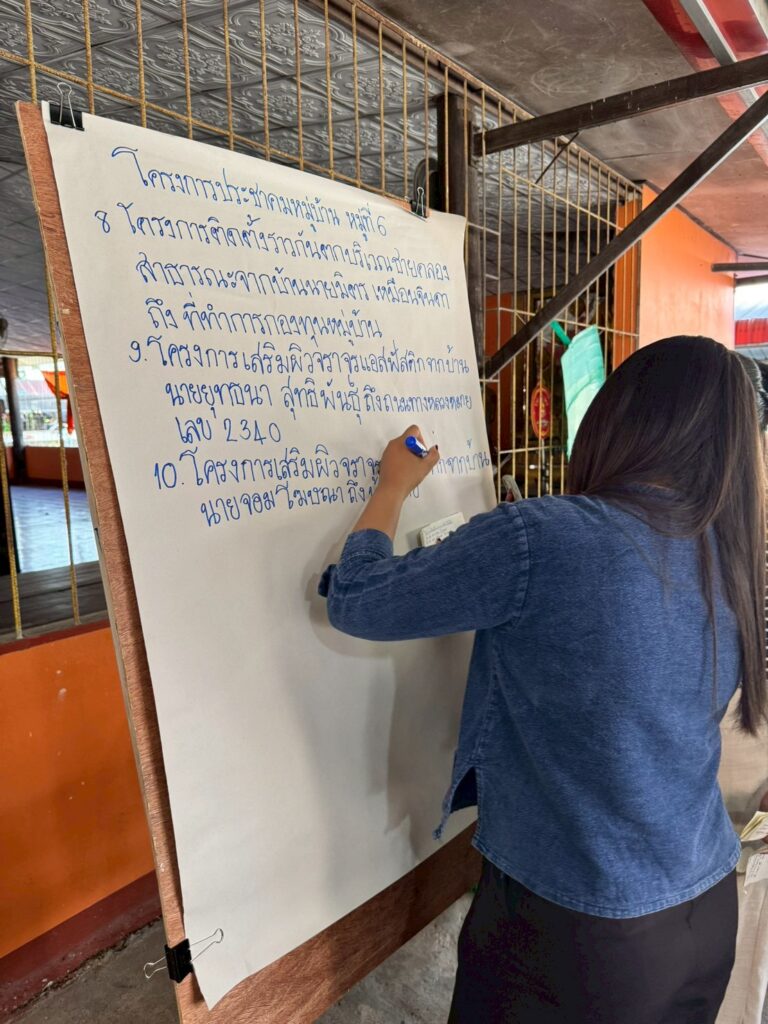 โครงการประชาคมหมู่บ้าน หมู่ที่ 6
8 โครงการติดตั้งราวกันตกบริเวณชายคลอง
สาธารณะจากบ้านนายมิตร เหมือนจินดา
ถึง ที่ทำการกองทุนหมู่บ้าน
9. โครงการเสริมผิวจราจรแอสฟัสติกจากบ้าน
นายยุทธนา สุทธิพันธุ์ ถึงถนนทางหลวงหมาย
เลข 2340
10. โครงการเสริมผิวจราจร จากบ้าน
นายจอม โฆษณา ถึง